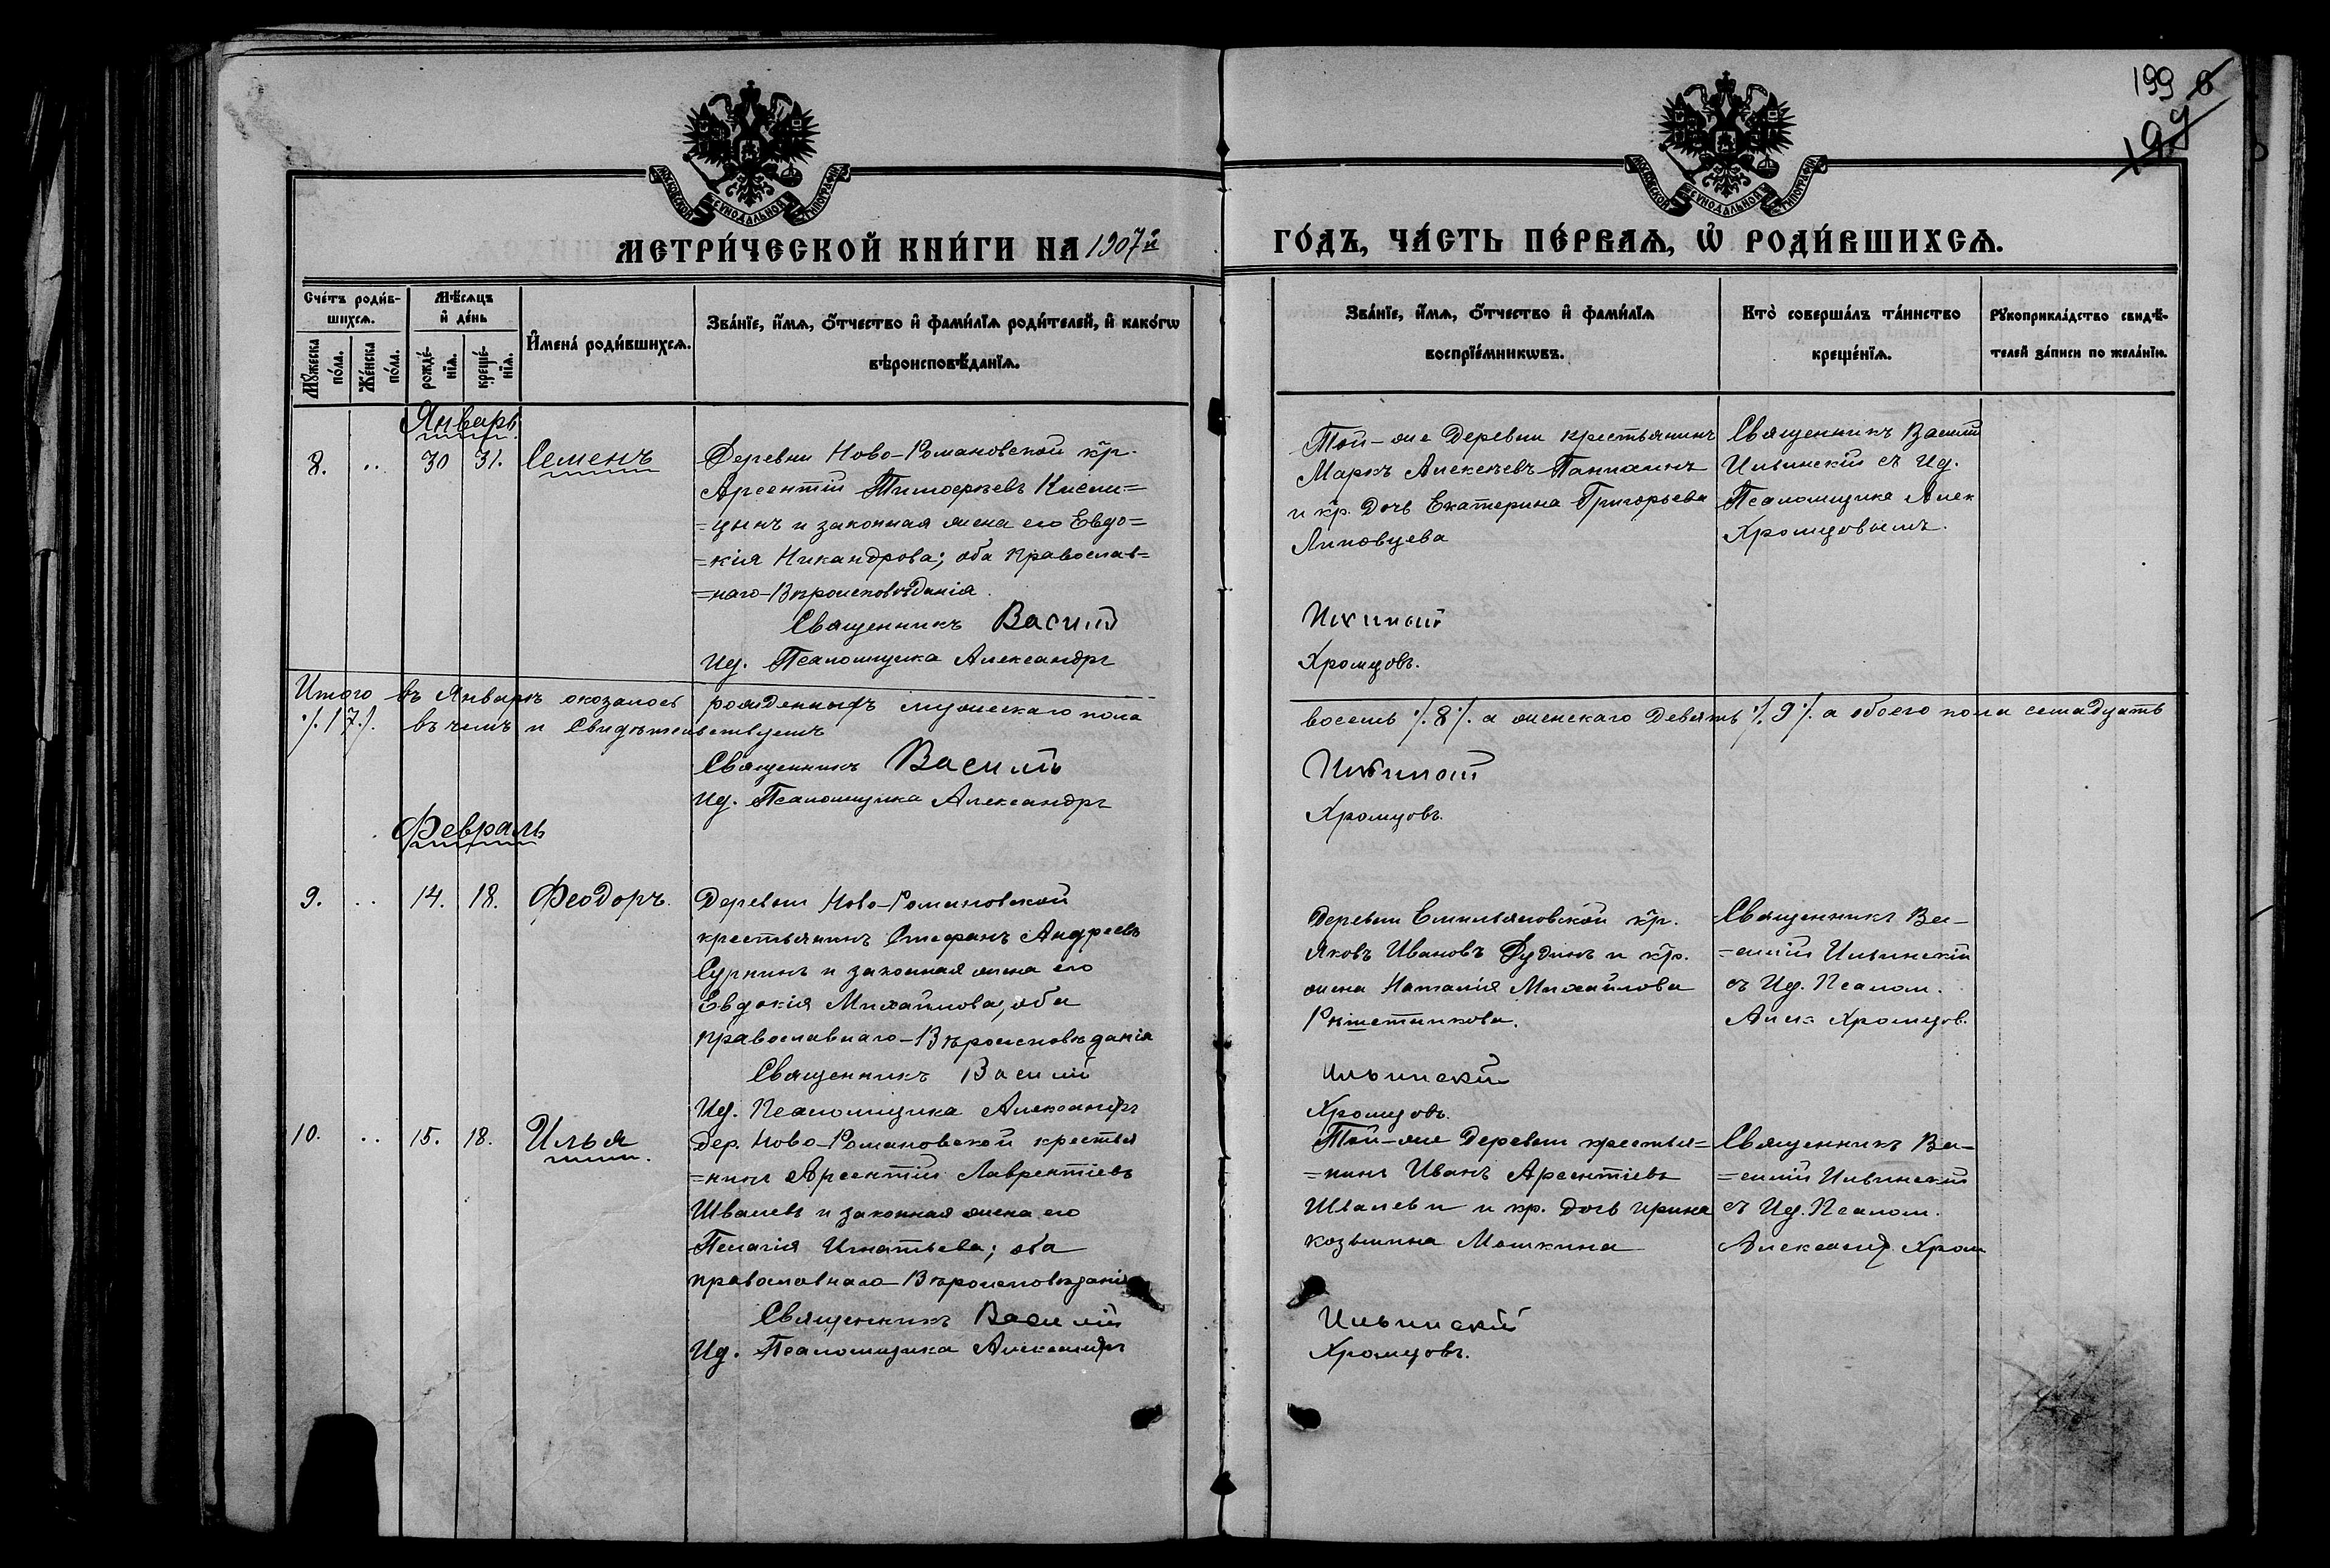 199
199
МОСКОВСКОЙ СѴНОДАЛЬНОЙ ТИПОГРАФІИ
МОСКОВСКОЙ СѴНОДАЛЬНОЙ ТИПОГРАФІИ
МЕТРИ́ЧЕСКОЙ КНИ́ГИ НА 1907й
ГО́ДЪ, ЧА́СТЬ ПЕ́РВАѦ, Ѡ҆ РОДИ́ВШИХСѦ.
Сче́тъ роди́в-
шихсѧ.
Мꙋ́жеска по́ла.
Же́нска по́ла.
Мѣ́сѧцъ
и҆ де́нь
рожде́-
нїѧ.
креще́-
нїѧ.
И҆мена̀ роди́вшихсѧ.
Зва́нїе, и҆́мѧ, ѻ҆́тчество и҆ фами́лїѧ роди́телей, и҆ како́гѡ
вѣроисповѣ́данїѧ.
Зва́нїе, и҆́мѧ, ѻ҆́тчество и҆ фами́лїѧ
воспрїе́мникѡвъ.
Кто̀ соверша́лъ та́инство
креще́нїѧ.
Рꙋкоприкла́дство свидѣ́-
телей за́писи по жела́нїю.
Январь
8. .. 30 31. Семенъ
Деревни Ново-Романовской кр.
Арсентій Тимофѣевъ Кисли=
=цынъ и законная жена его Евдо=
=кія Никандрова; оба Православ=
=наго-Вѣроисповѣданія.
Священникъ Василій
Ид. Псаломщика Александръ
Той-же Деревни крестьянинъ
Маркъ Алексѣевъ
и кр. Дочь Екатерина Григорьева
Липовцева
Ильинскій
Хромцовъ.
Священникъ Василій
Ильинскій съ Ид.
Псаломщика Алек
Хромцовымъ.
Итого въ Январѣ оказалось рожденныхъ мужескаго пола восемь ./.8./. а женскаго Девять ./.9./. а обоего пола семнадцать
./.17./. въ чемъ и Свидѣтельствуемъ
Священникъ Василій Ильинскій
Ид. Псаломщика Александръ Хромцовъ.
Февраль
9. .. 14. 18. Феодоръ.
Деревни Ново-Романовской
крестьянинъ Стефанъ Андреевъ
и законная жена его
Евдокія Михайлова, оба
православнаго-Вѣроисповѣданія
Священникъ Василій
Ид. Псаломщика Александръ
Деревни Емильяновской кр.
Яковъ Ивановъ Дудинъ и кр.
жена Наталія Михайлова
Рѣшетникова.
Ильинскій
Хромцовъ.
Священникъ Ва-
=силій Ильинскій
съ Ид. Псалом.
Алек. Хромцов.
10. .. 15. 18. Илья
Дер. Ново-Романовской крестья
=нинъ Арсентій Лаврентіевъ
Швалевъ и законная жена его
Пелагія Игнатьева; оба
православнаго-Вѣроисповѣданія
Священникъ Василій
Ид. Псаломщика Александръ
Той-же Деревни крестья=
=нинъ Иванъ Арсентіевъ
Швалевъ и кр. дочь Ирина
Козьмина Мошкина
Ильинскій
Хромцовъ.
Священникъ Ва-
=силій Ильинскій
съ Ид. Псалом.
Александ. Хром